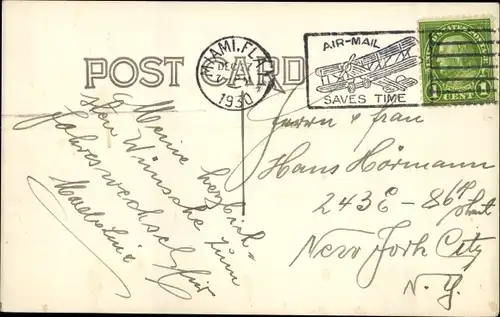 POST CARD
MIAMI, FLA.
DEC
1930
AIR-MAIL
SAVES TIME
1 CENT 1
Meine herzlich-
sten Wünsche zum
Jahreswechsel für
Herrn & Frau
Hans Hörmann
243 E - 86th
New York City
N.Y.